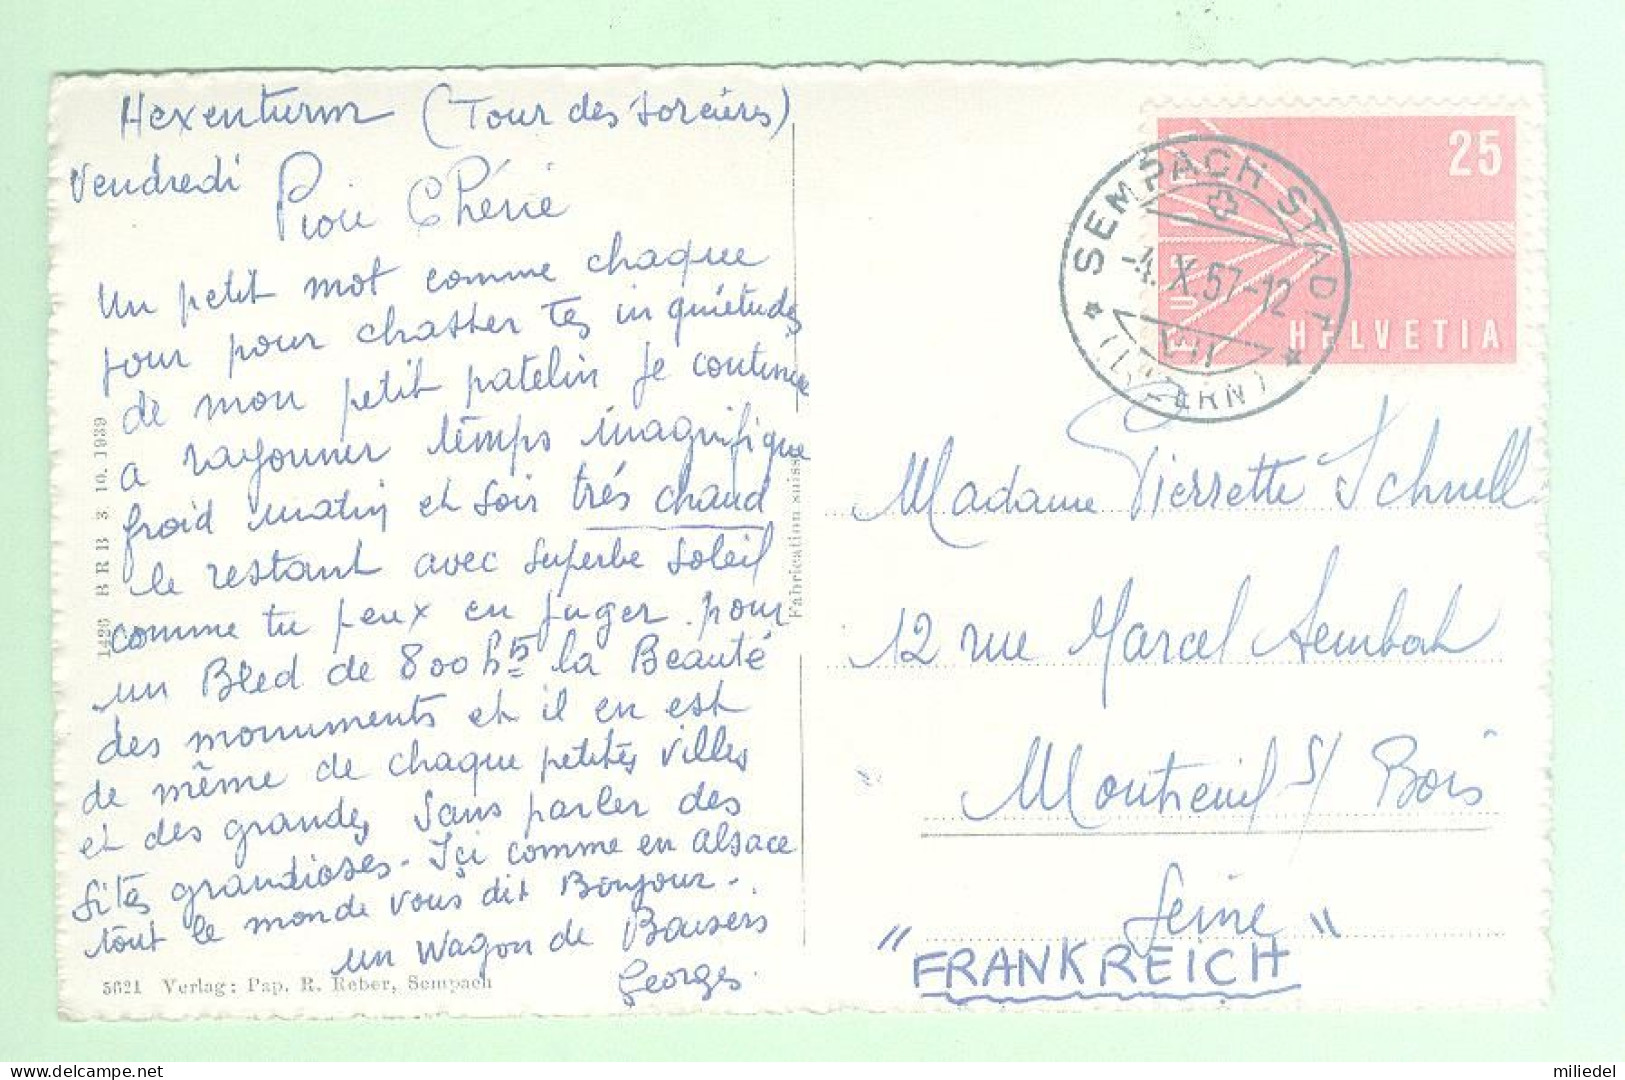 Hexenturm (Tour des Sorcières)
Vendredi
Piou Chérie
Un petit mot comme chaque
jour pour chasser tes inquiétudes
de mon petit patelin je continue
a rayonner temps magnifique
froid matin et soir très chaud
le restant avec superbe soleil
comme tu peux en juger. pour
un Bled de 800 hts la Beauté
des monuments et il en est
de même de chaque petites villes
et des grandes, sans parler des
sites grandioses - Içi comme en alsace
tout le monde vous dit Bonjour -.
un wagon de Baisers
Georges.
1420 BRB 3. 10. 1939
5621 Verlag: Pap. R. Reber, Sempach
Fabrication suisse
25
HELVETIA
SEMPACH STADT
-4. X. 57-12
(LUZERN)
Madame Pierrette Schnell
12 rue Marcel Sembat
Montreuil s/ Bois
Seine
"FRANKREICH"
miledel